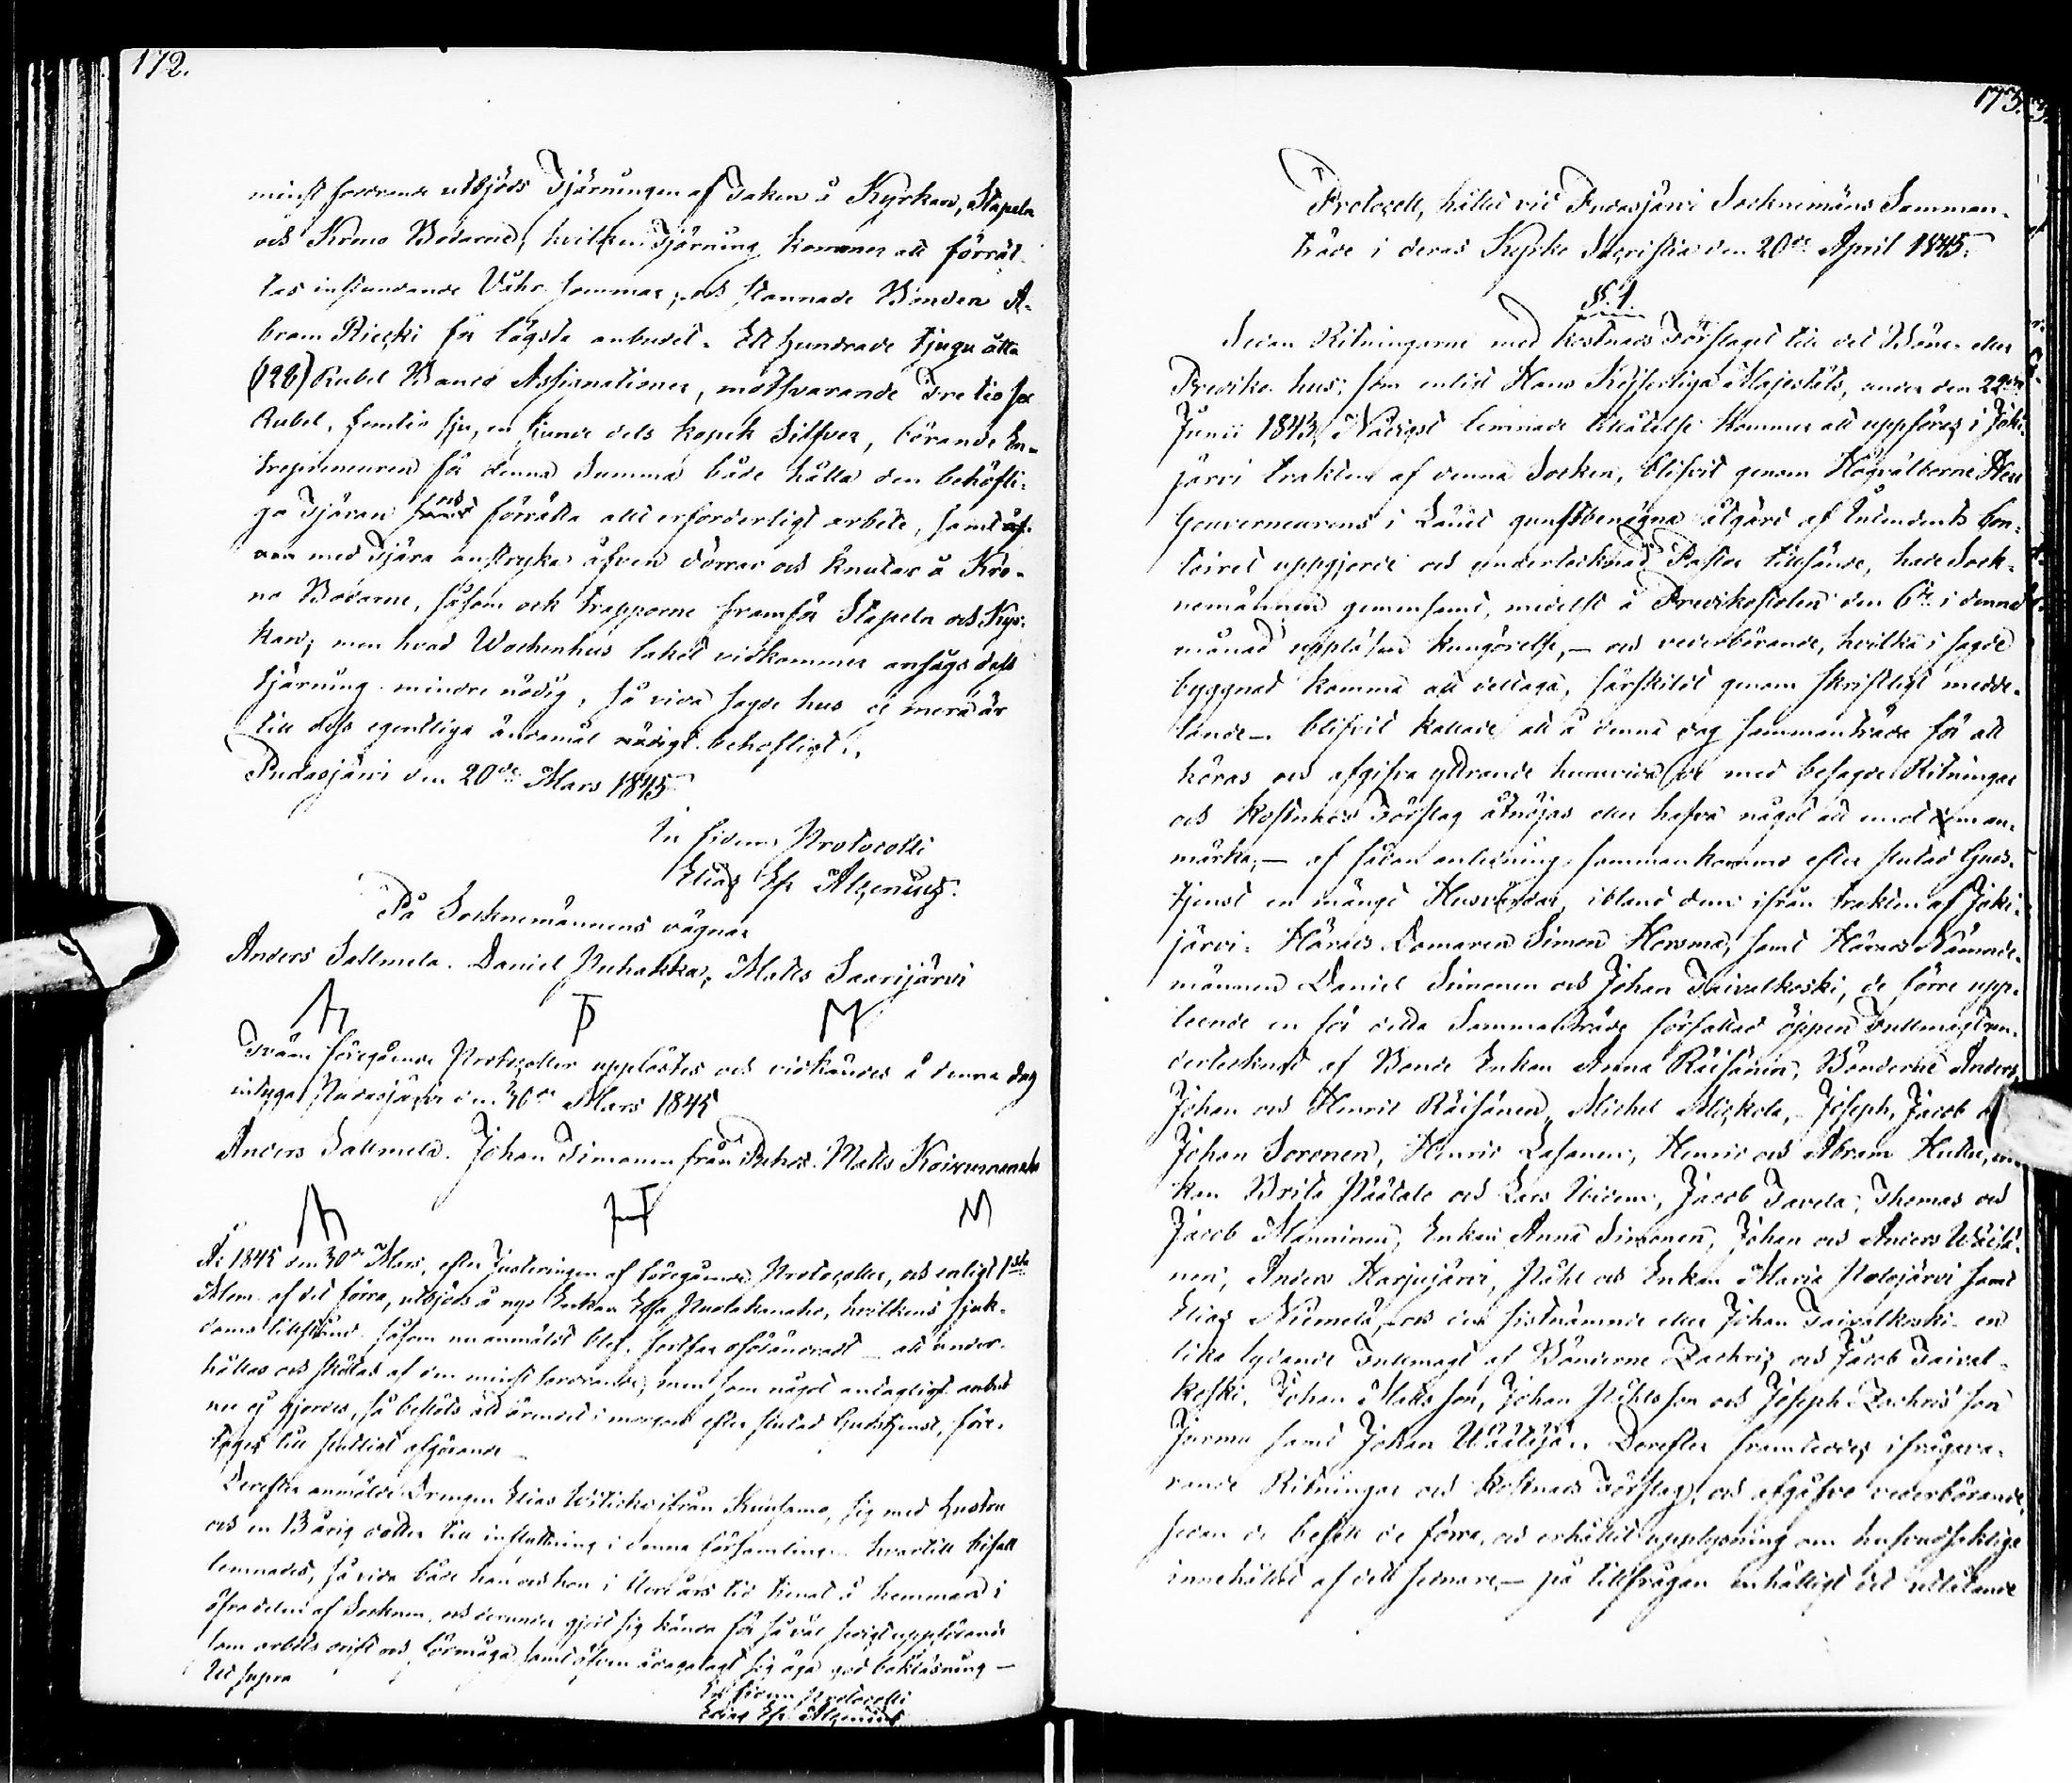 172.
minst fordrande utbjöds Tjärningen af Taken å Kyrkan, Stapeln
och Krono Bodarne, hvilken Tjärning kommer att förrät-
tas instundande Våhr sommar, och stannade Bonden A-
bram Riecki för lägsta anbudet. Ett hundrade tjugu åtta
(128) Rubel Banco Assignationer, motsvarande Tretio sex
Rubel, femtio sju, en siunde dels kopek Silfver, börande En-
trepreneuren för denna Summa både hålla den behöfli-
ga Tjäran och förrätta allt erforderligt arbete, samt äf-
ven med Tjära anstryka äfven dörrar och knutar å Kro-
no Bodarne, såsom ock trapporne framför Stapeln och Kyr-
kan; men hvad Wochenhus taket vidkommer ansågs dess
tjärning mindre nödig, så vida sagde hus ej mera är
till dess egentliga ändamål behöfligt.
Pudasjärvi den 20de Mars 1845
In fidem Protocolli
Elias Ep. Alcenius.
På Socknemännens vägnar
Anders Sallmela. Daniel Puhakka, Matts Saarijärvi
Tvänne föregående Protocoller upplästes och vidkändes å denna dag
intygar Pudasjärvi den 30de Mars 1845
Anders Sallmela. Johan Timonen från Puhos. Matts Koivumaa
År 1845 den 30de Mars, efter Justeringen af föregående Protocoller, och enligt 1sta
Mom. af det förra, utbjöds å nyo Enkan Eva Puolakanaho, hvilkens sjuk-
doms tillstånd såsom nu anmäldt blef, fortfar oförändradt – att under-
hållas och skötas af den minst fordrande; men som något antagligt anbud
nu ej gjordes, så beslöts att ärendet i morgon efter slutad Gudstjenst, före-
tages till slutligt afgörande –
Derefter anmälde Drengen Elias Wilicko ifrån Kuusamo, sig med hustru
och en 13 årig dotter till inflyttning i denna församling – hvartill bifall
lemnades, så vida både han och hon i flere års tid tjenat å hemman i
öfra delen af Socknen, och derunder gjort sig kända för så väl sedigt uppförande
som arbets drift och förmåga, samt äfven ådagalagt sig äga god bokläsning –
Ut supra
In fidem Protocolli
Elias Ep. Alcenius
173.
Protocoll, hållet vid Pudasjärvi Socknemäns Samman-
träde i deras Kyrko Sacristia den 20de April 1845.
§. 1.
Sedan Ritningarne med kostnads Förslaget till det Böne- eller
Prediko-hus, som enligt Hans Kejserliga Majestäts, under den 22dra
Junii 1843, Nådigst lemnade tillåtelse kommer att uppföras i Joki-
järvi trakten af denna Socken, blifvit genom Högvälborne Herr
Gouverneurens i Länet gunstbenägna åtgärd af Intendents Con-
toiret uppgjorde och undertecknad Pastor tillsände, hade Sock-
nemännen gemensamt, medelst å Predikostolen den 6te i denna
månad uppläsen kungörelse, – och vederbörande, hvilka i sagde
byggnad komma att deltaga, särskildt genom skriftligt medde-
lande – blifvit kallade att å denna dag sammanträda för att
höras och afgifva yttrande huruvida de med besagde Ritningar
och Kostnads Förslag åtnöjas eller hafva något att emot dem an-
märka; – af sådan anledning sammankommo efter slutad Guds-
tjenst en mängd Husbönder, ibland dem ifrån trakten af Joki-
järvi: Härads Domaren Simon Horsma, samt Härads Nämnde-
männen Daniel Simonen och Johan Taivalkoski, de förre upp-
teende en för detta Sammanträde författad öppen Fullmagt, un-
dertecknad af Bonde Enkan Anna Räisänen, Bönderne Anders,
Johan och Henric Räisänen, Michel Mickola, Joseph, Jacob
Johan Soronen, Henric Lasanen, Henric och Abram Hukari, En-
kan Brita Määtälä och Lars Nicken, Jacob Tavela, Thomas och
Jacob Manninen, Enkan Anna Simonen, Johan och Anders Wäisä-
nen, Anders Harjujärvi, Påhl och Enkan Maria Polojärvi samt
Elias Niemelä, och den sistnämnde eller Johan Taivalkoski en
lika lydande Fullmagt af Bönderne Zachris och Jacob Taival-
koski, Johan Mattsson, Johan Påhlsson och Joseph Zachrisson
Jurmu samt Johan Wäätäjä. Derefter framteddes ifrågava-
rande Ritningar och Kostnads Förslag, och afgåfvo vederbörande,
sedan de besett de förra, och erhållit upplysning om hufvudsakliga
innehållet af det sednare, – på tillfrågan enhälligt det utlåtande